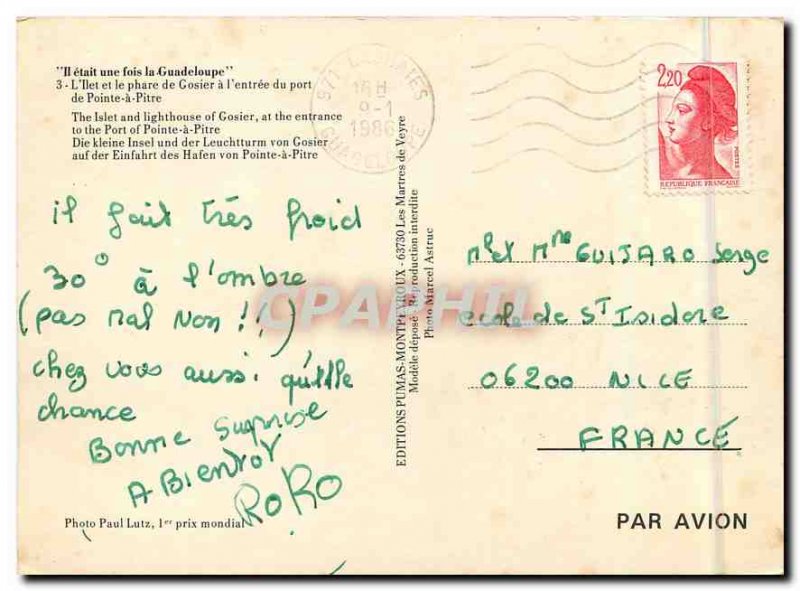 "Il était une fois la Guadeloupe"
3 - L'Ilet et le phare de Gosier à l'entrée du port
de Pointe-à-Pitre
The Islet and lighthouse of Gosier, at the entrance
to the Port of Pointe-à-Pitre
Die kleine Insel und der Leuchtturm von Gosier
auf der Einfahrt des Hafen von Pointe-à-Pitre
il fait très froid
30° à l'ombre
(pas mal non!!)
chez vous aussi. qu'elle
chance
Bonne Surprise
A Bientot
RoRo
Photo Paul Lutz, 1er prix mondial
EDITIONS PUMAS-MONTPEYROUX - 63730 Les Martres de Veyre
Modèle déposé Reproduction interdite
Photo Marcel Astruc
971
16H
9-1
1986
GUADELOUPE
2,20
POSTES
REPUBLIQUE FRANÇAISE
Mr et Mme GUIJARO Serge
ecole de ST Isidore
06200 NICE
FRANCE
PAR AVION
CPARHIL